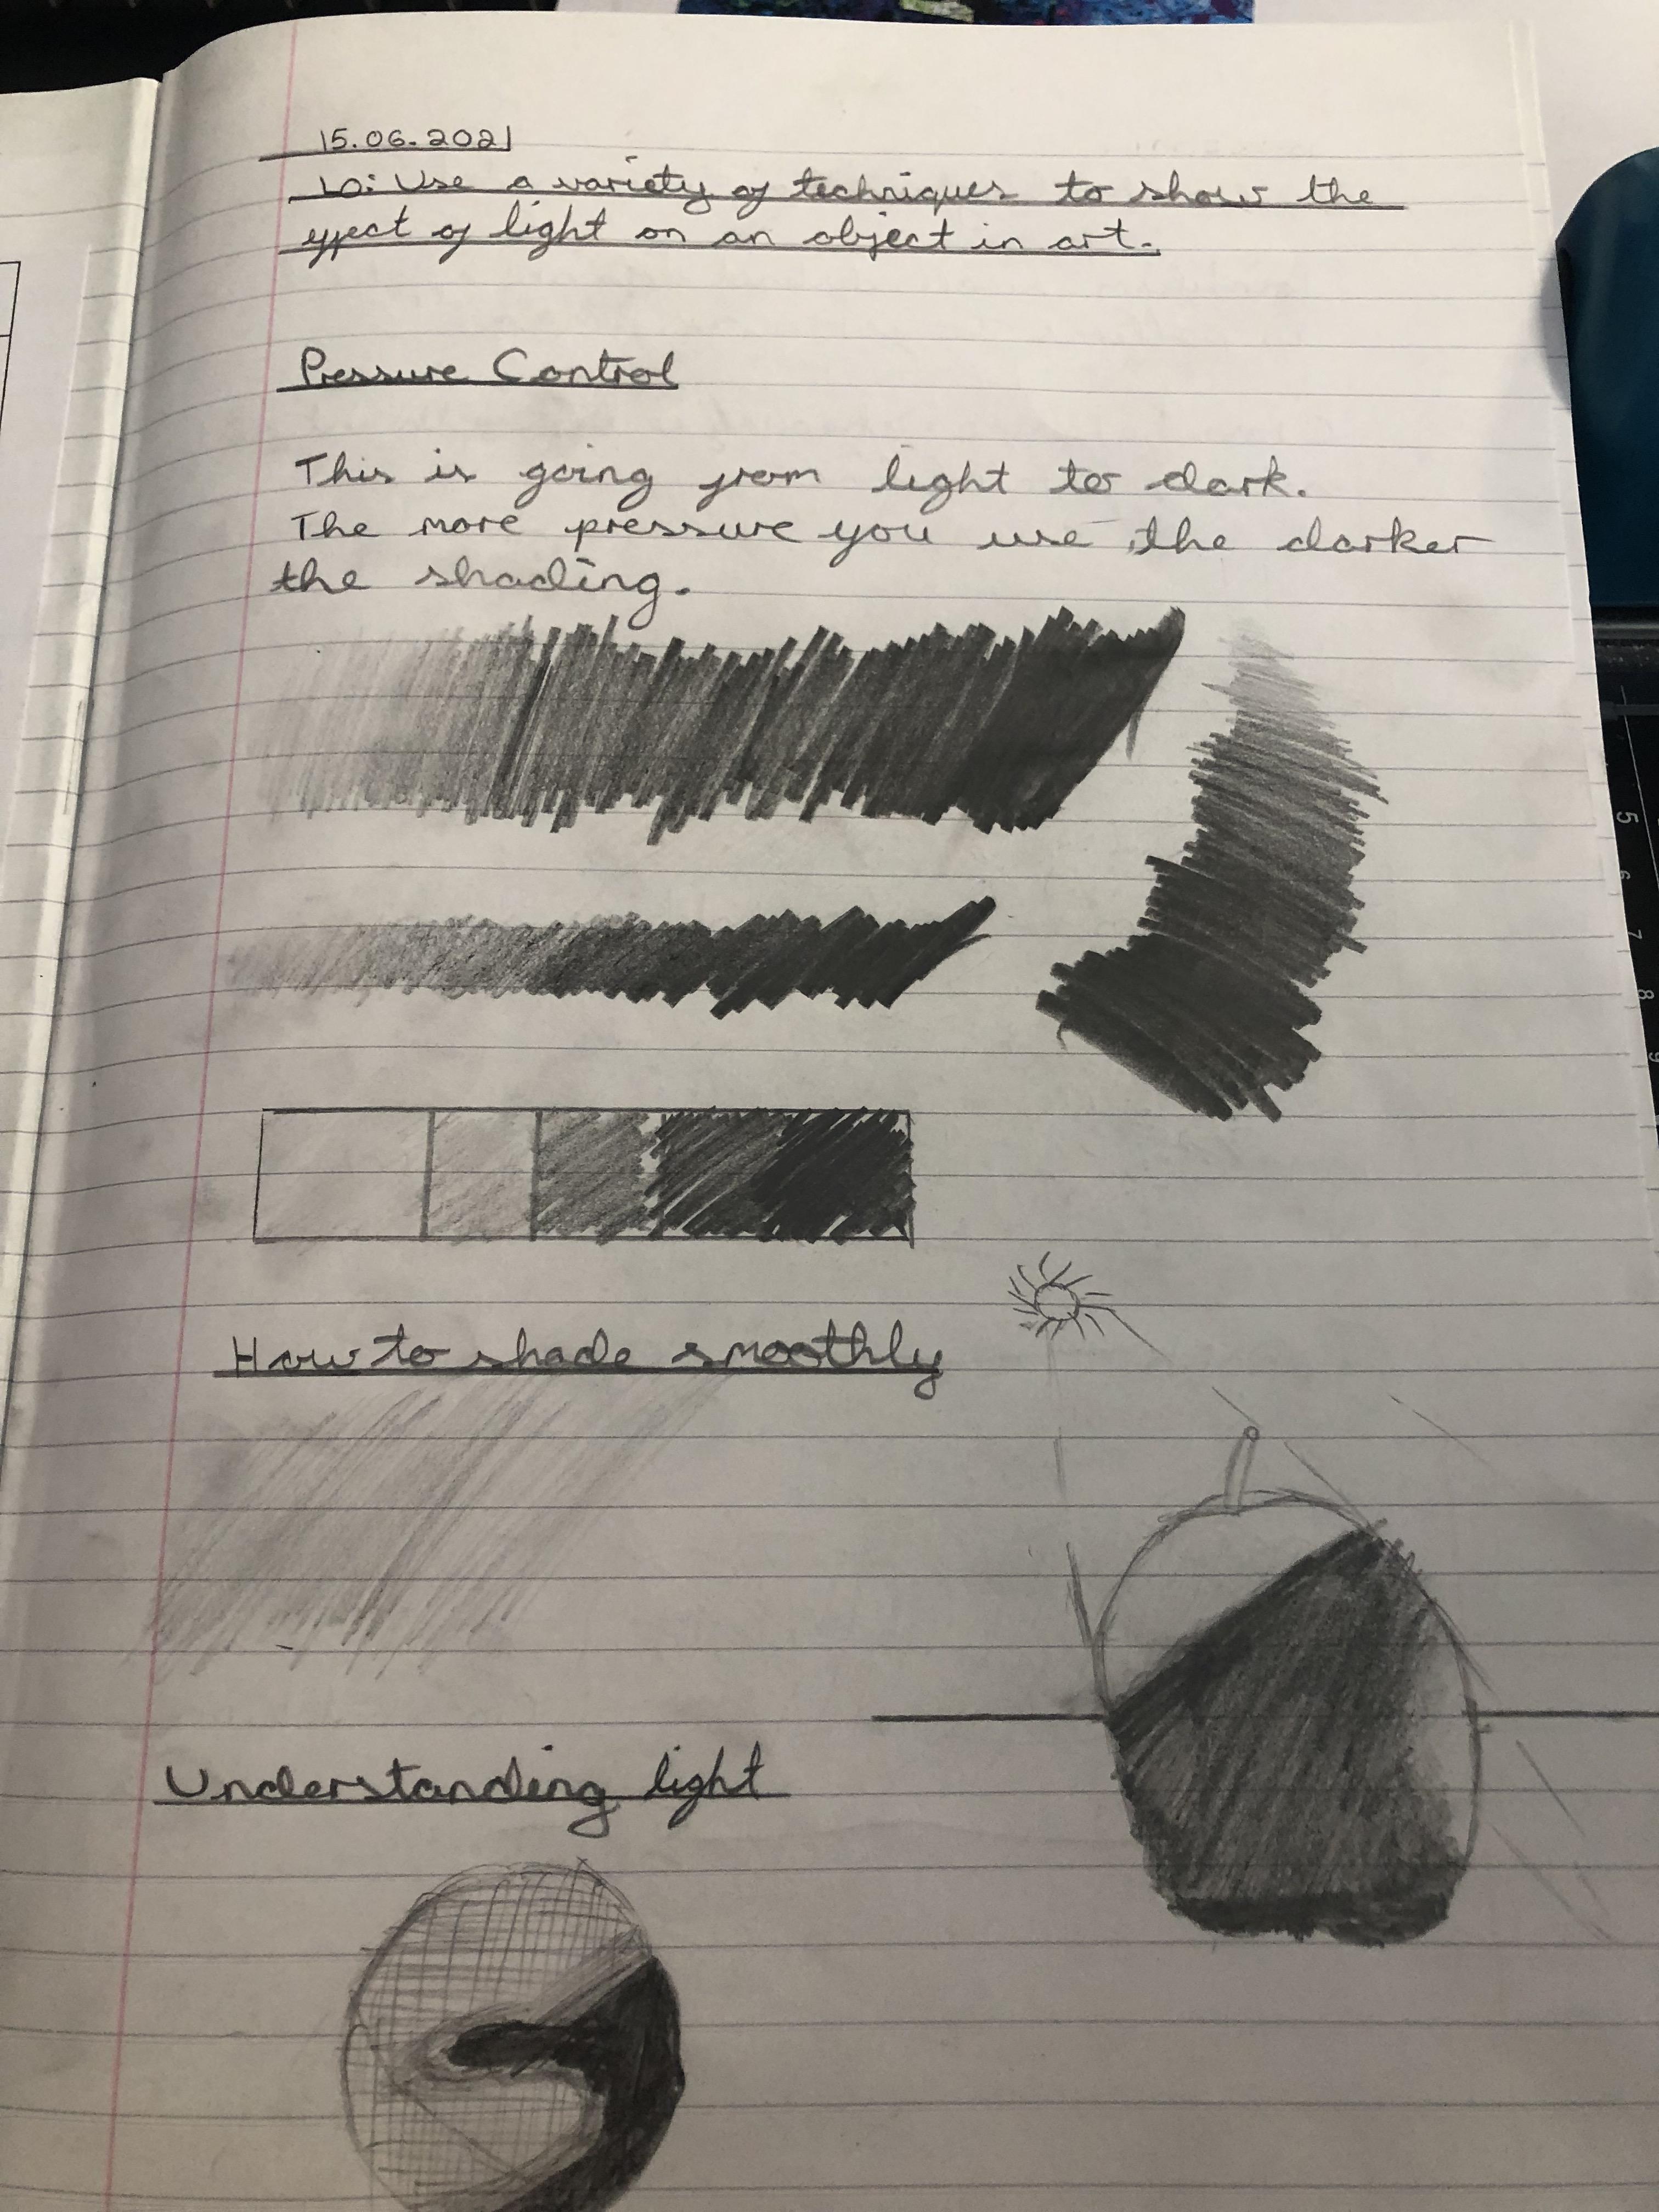 15.06.2021
LO: Use a variety of techniques to show the
effect of light on an object in art.
Pressure Control
This is going from light to dark.
The more pressure you use, the darker
the shading.
5
6
7
8
9
How to shade smoothly
Understanding light